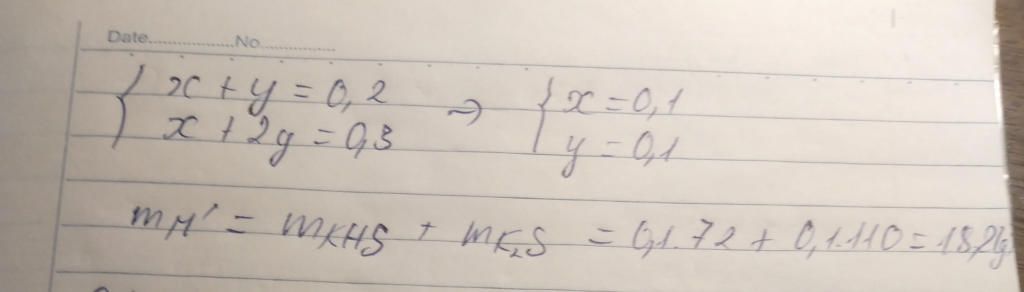 Date..................No................
{ x + y = 0,2 => { x = 0,1
x + 2y = 0,3 y = 0,1
mM' = mKHS + mK₂S = 0,1.72 + 0,1.110 = 18,2g